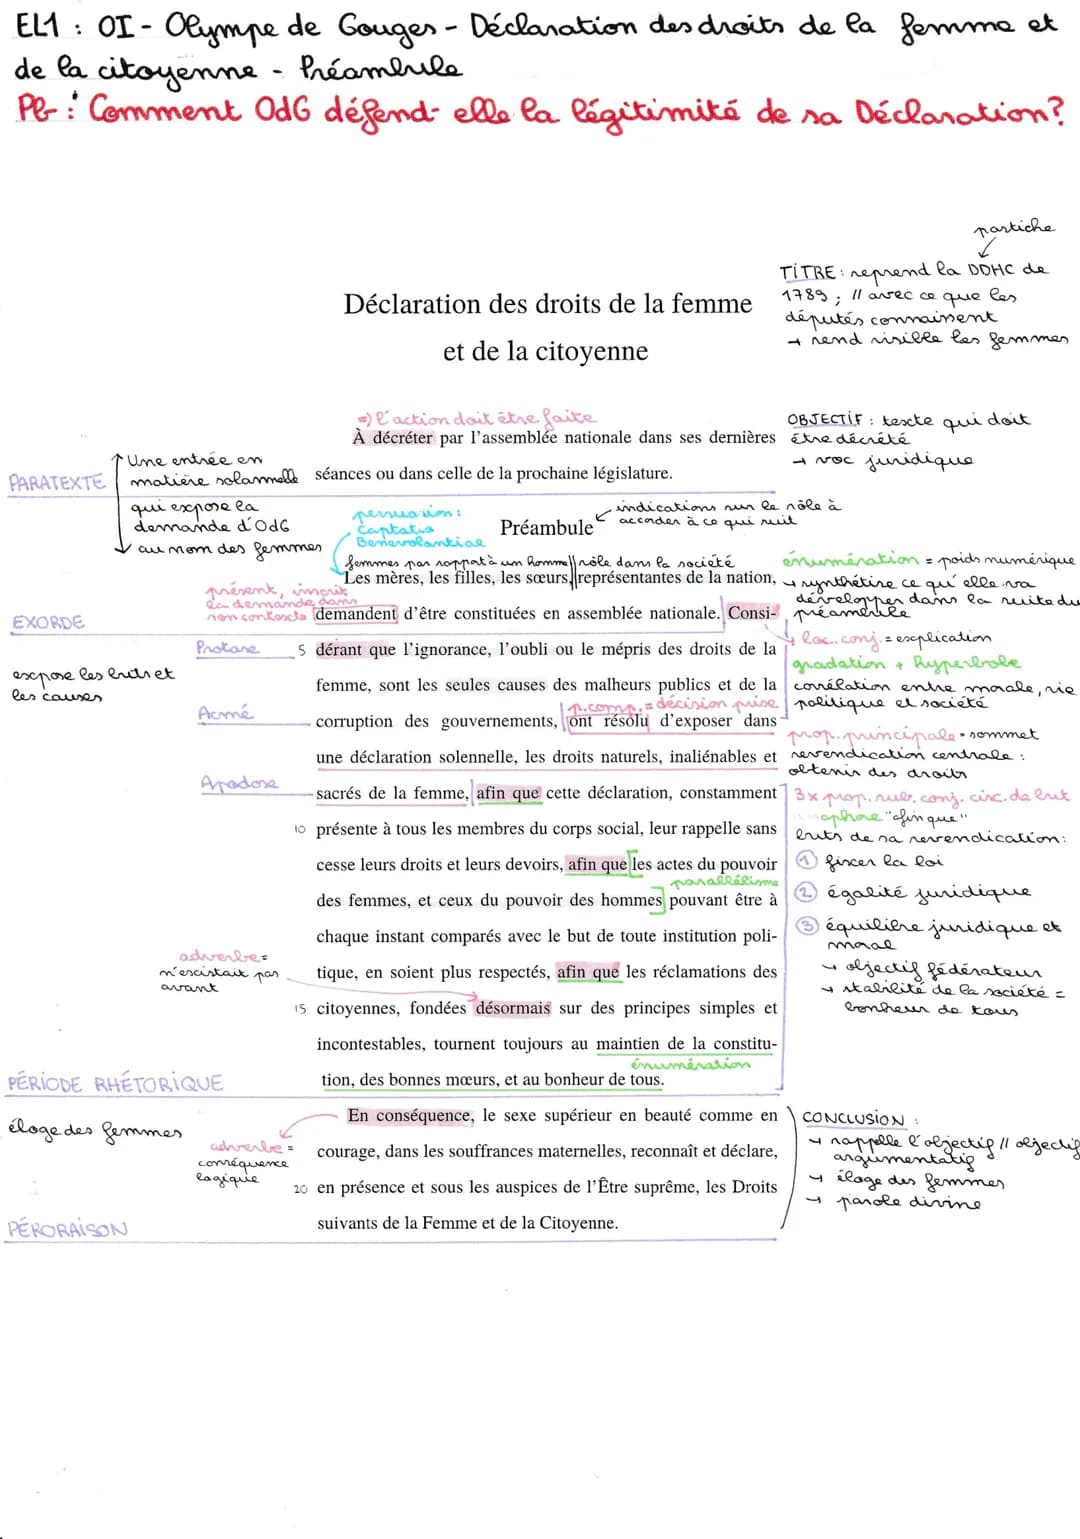 EL1 : OI - Olympe de Gouges - Déclaration des droits de la femme et
de la citoyenne - Préambule
Pb : Comment OdG défend-elle la légitimité de sa Déclaration?
pastiche
TITRE : reprend la DDHC de
1789 ; // avec ce que les
députés connaissent
→ rend visible les femmes
Déclaration des droits de la femme
et de la citoyenne
=) l'action doit être faite
À décréter par l'assemblée nationale dans ses dernières
séances ou dans celle de la prochaine législature.
OBJECTIF : texte qui doit
être décrété
→ voc juridique
PARATEXTE
Une entrée en
matière solannelle
qui expose la
demande d'OdG
au nom des femmes
persuasion :
Captatio
Benevolantiae
Préambule
indications sur le rôle à
accorder à ce qui suit
femmes par rapport à un homme // rôle dans la société
Les mères, les filles, les sœurs, représentantes de la nation,
énumération = poids numérique
→ synthétise ce qu'elle va
développer dans la suite du
préambule
présent, inscrit
la demande dans
son contexte
demandent d'être constituées en assemblée nationale. Consi-
EXORDE
loc. conj. = explication
Protase
5 dérant que l'ignorance, l'oubli ou le mépris des droits de la
gradation + hyperbole
expose les buts et
les causes
femme, sont les seules causes des malheurs publics et de la
corrélation entre morale, vie
politique et société
p. comp. = décision prise
Acmé
corruption des gouvernements, ont résolu d'exposer dans
prop. principale = sommet
une déclaration solennelle, les droits naturels, inaliénables et
revendication centrale :
obtenir des droits
Apodose
sacrés de la femme, afin que cette déclaration, constamment
3x prop. sub. conj. circ. de but
"afin que"
10 présente à tous les membres du corps social, leur rappelle sans
buts de sa revendication :
cesse leurs droits et leurs devoirs, afin que les actes du pouvoir
① fixer la loi
parallélisme
des femmes, et ceux du pouvoir des hommes pouvant être à
② égalité juridique
chaque instant comparés avec le but de toute institution poli-
③ équilibre juridique et
moral
adverbe =
n'existait pas
avant
tique, en soient plus respectés, afin que les réclamations des
→ objectif fédérateur
→ stabilité de la société =
bonheur de tous
15 citoyennes, fondées désormais sur des principes simples et
incontestables, tournent toujours au maintien de la constitu-
énumération
tion, des bonnes mœurs, et au bonheur de tous.
PÉRIODE RHÉTORIQUE
En conséquence, le sexe supérieur en beauté comme en
éloge des femmes
CONCLUSION :
adverbe =
conséquence
logique
courage, dans les souffrances maternelles, reconnaît et déclare,
→ rappelle l'objectif // objectif
argumentatif
→ éloge des femmes
→ parole divine
20 en présence et sous les auspices de l'Être suprême, les Droits
suivants de la Femme et de la Citoyenne.
PÉRORAISON